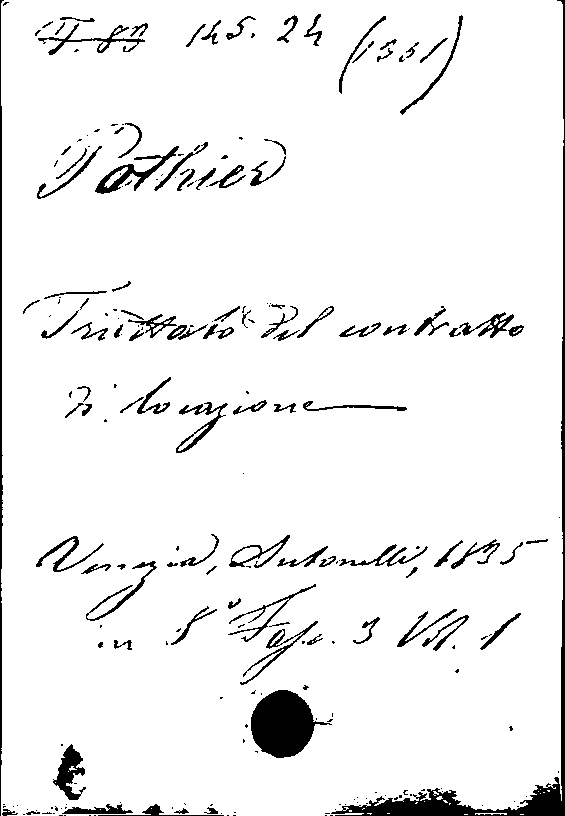 F. 83 145. 24 (1331)
Pothier
Trattato del contratto
di locazione
Venezia, Antonelli, 1835
in 8° Fasc. 3 Vol. 1